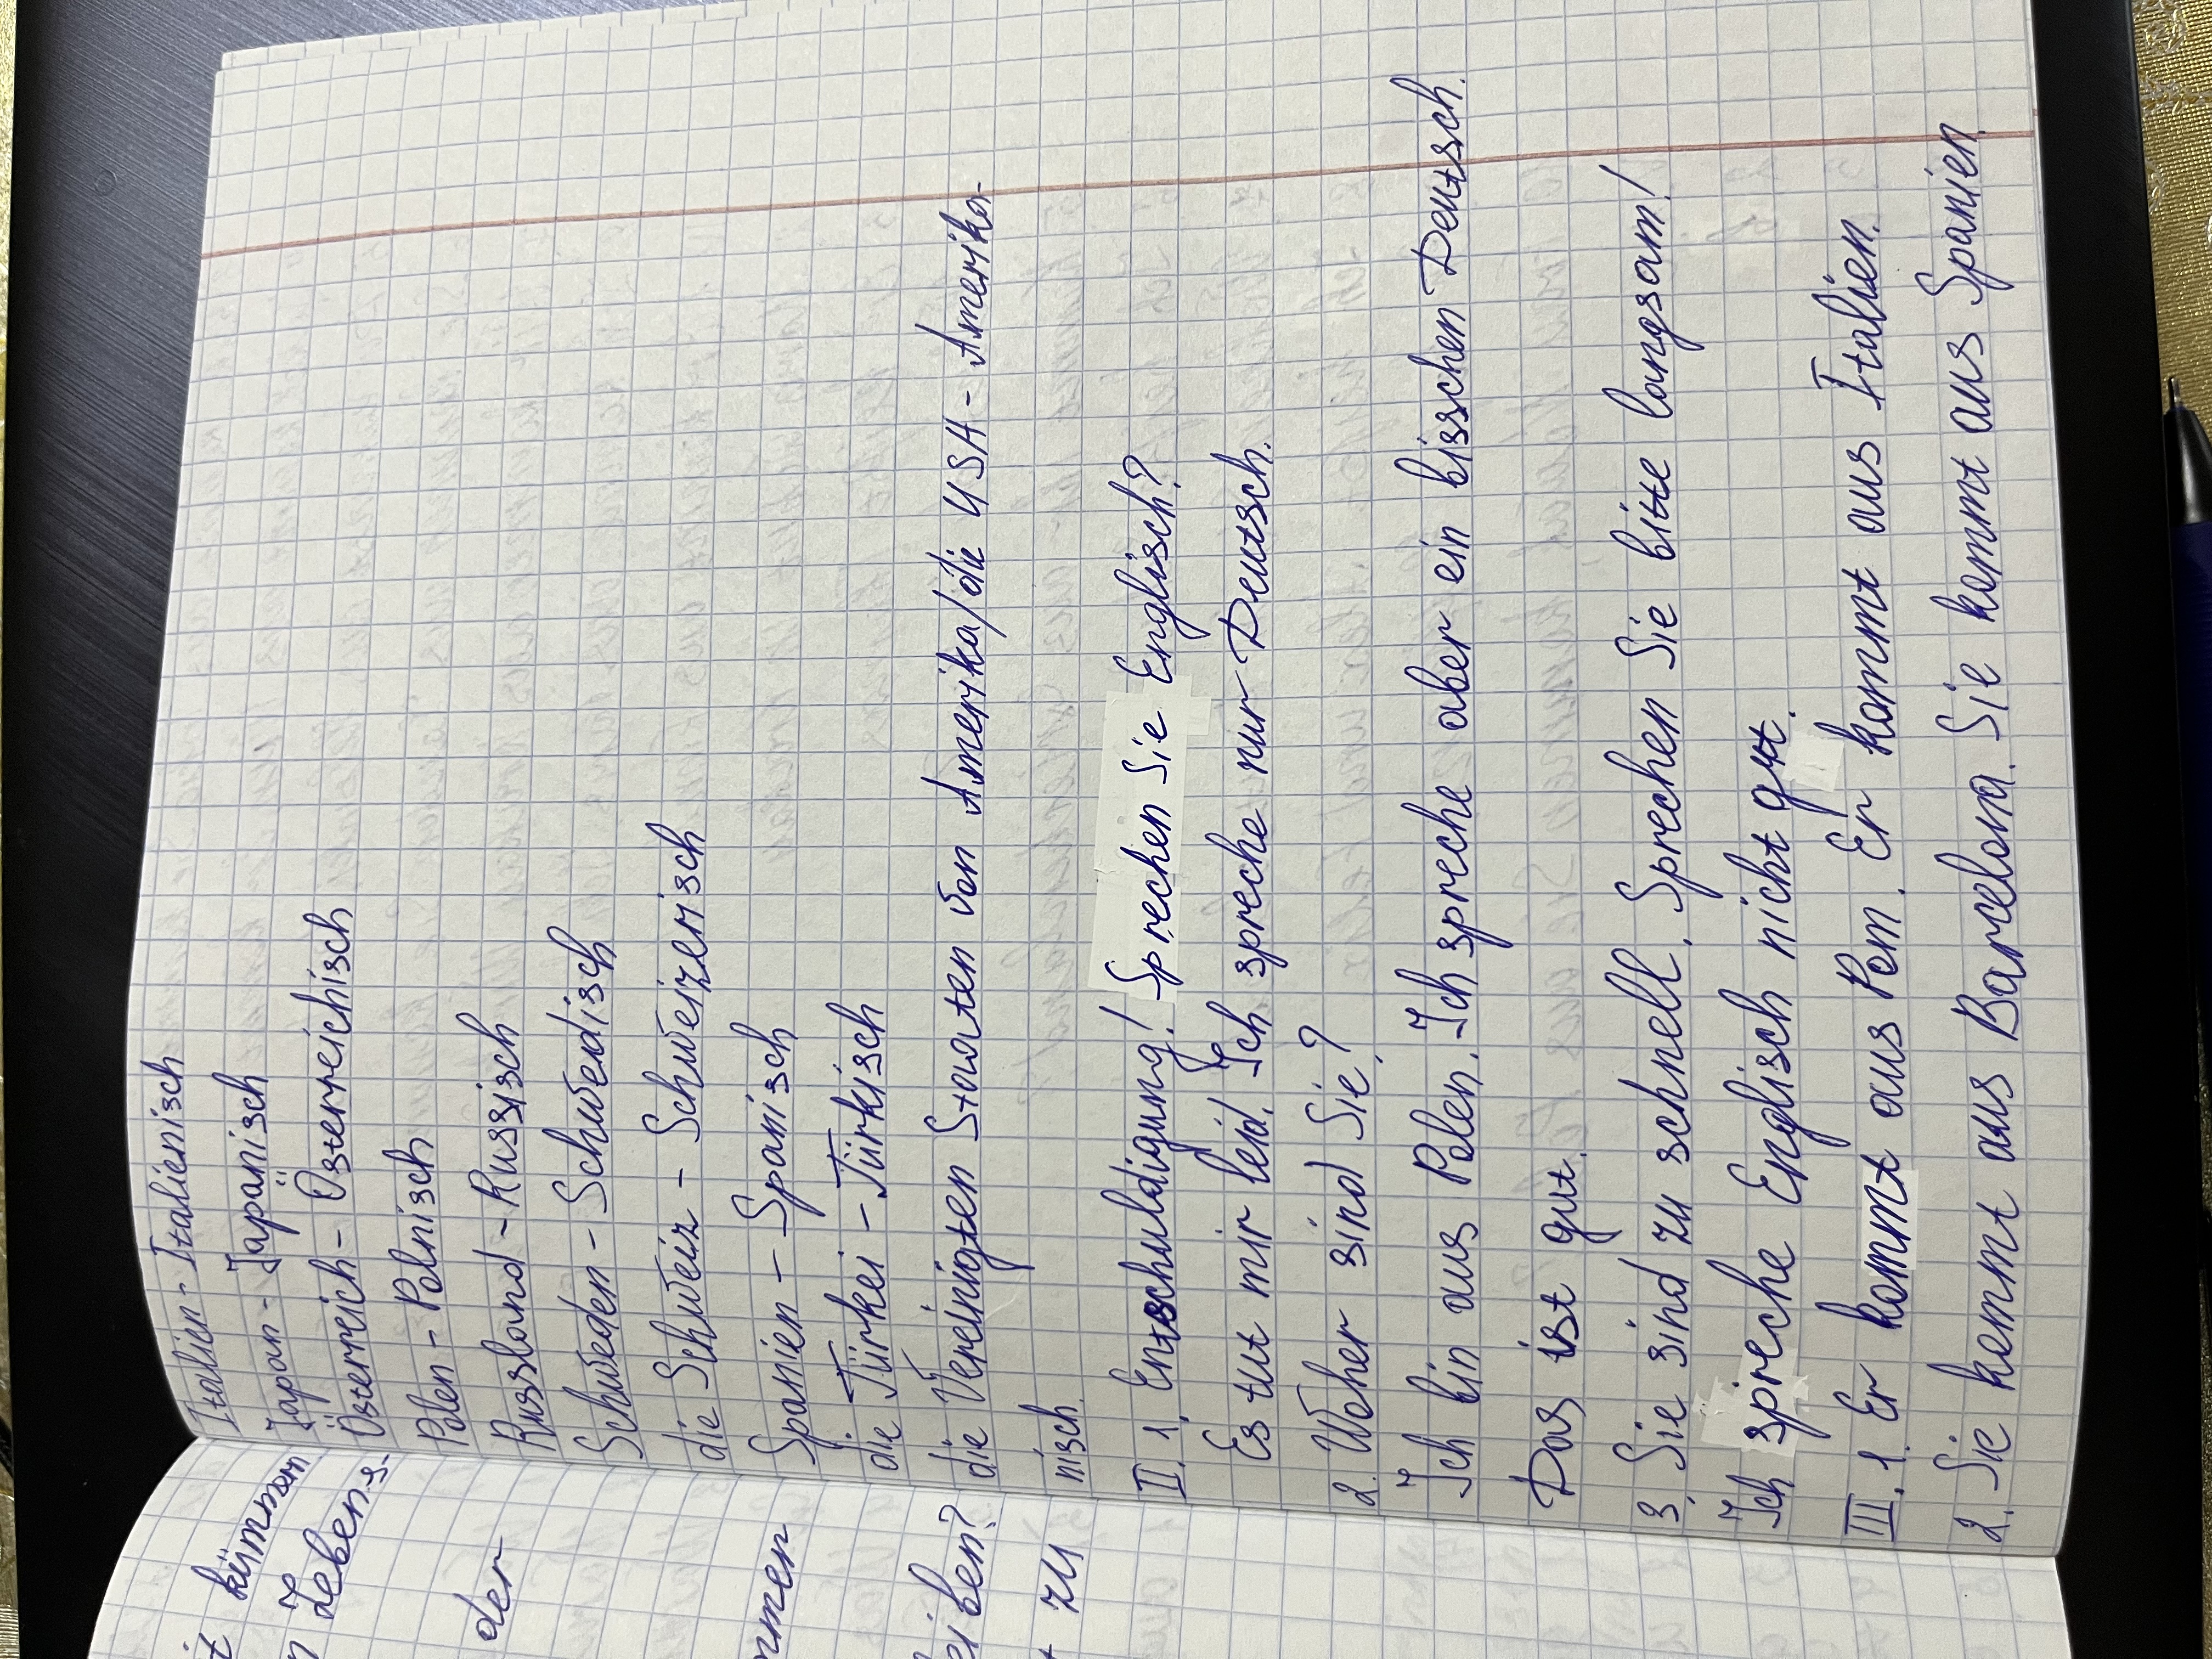 it kümmern
Lebens-
der
mmen
eiben?
zu
Italien - Italienisch
Japan - Japänisch
Österreich - Österreichisch
Polen - Polnisch
Russland - Russisch
Schweden - Schwedisch
die Schweiz - Schweizerisch
Spanien - Spanisch
die Türkei - Türkisch
die Vereinigten Staaten von Amerika/die USA - Amerika-
nisch
II. 1. Entschuldigung! Sprechen Sie Englisch?
Es tut mir leid. Ich spreche nur Deutsch.
2. Woher sind Sie?
Ich bin aus Polen. Ich spreche aber ein bisschen Deutsch.
Das ist gut.
3. Sie sind zu schnell. Sprechen Sie bitte langsam!
Ich spreche Englisch nicht gut.
III. 1. Er kommt aus Rom. Er kommt aus Italien.
2. Sie kommt aus Barcelona. Sie kommt aus Spanien.